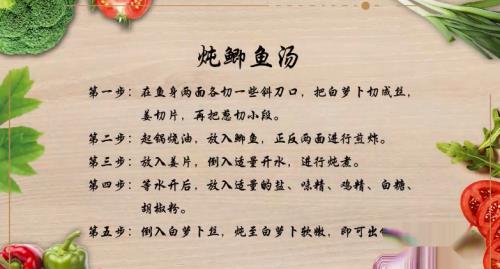 炖鲫鱼汤
第一步：在鱼身两面各切一些斜刀口，把白萝卜切成丝，
姜切片，再把葱切小段。
第二步：起锅烧油，放入鲫鱼，正反两面进行煎炸。
第三步：放入姜片，倒入适量开水，进行炖煮。
第四步：等水开后，放入适量的盐、味精、鸡精、白糖、
胡椒粉。
第五步：倒入白萝卜丝，炖至白萝卜软嫩，即可出